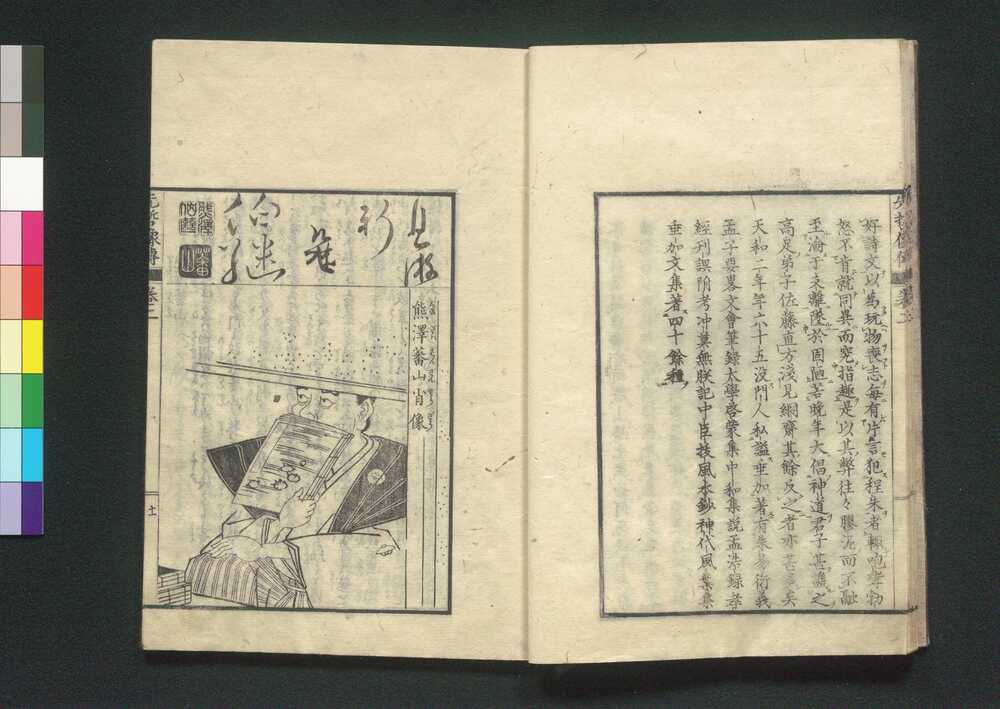 好詩文以為玩物喪志每有片言犯程朱者輙咆哮勃
怒不肯就同異而究指趣是以其弊往々膠泥而不融
至淪于支離墜於固陋若晩年大倡神道君子甚譏之
高足弟子佐藤直方淺見絅齋其餘反之者亦甚多矣
天和二年年六十五没門人私謚垂加著有朱易衍義
孟子要畧文會筆録大學啓蒙集中和集説孟浩録孝
經刊誤附考冲莫無朕記中臣祓風水鈔神代風葉集
垂加文集著四十餘種
先哲像傳 卷二
熊澤蕃山肖像
先哲像傳 卷二
十一